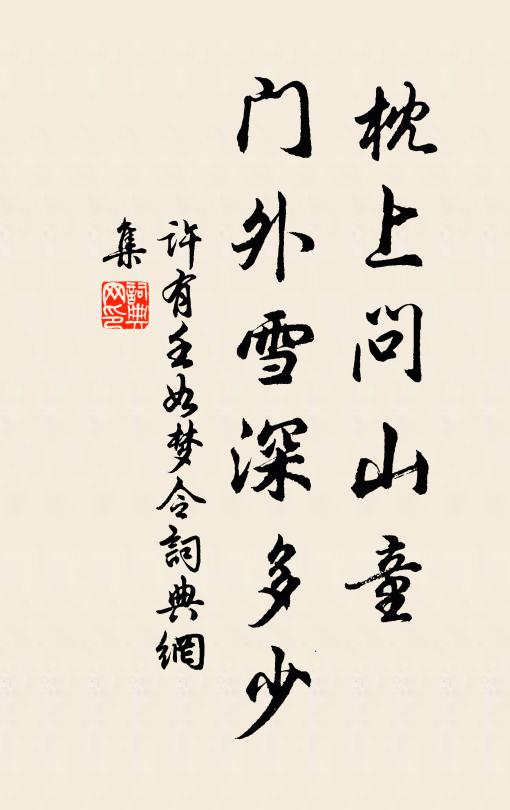 枕上问山童
门外雪深多少
许有壬如梦令詞典網
集
詞典网印